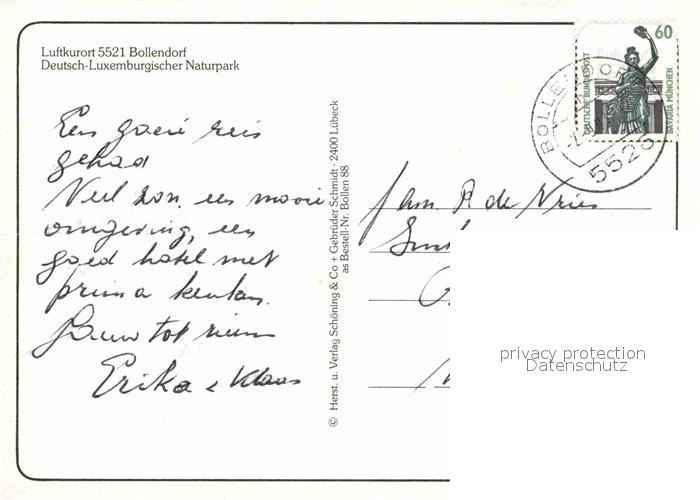 Luftkurort 5521 Bollendorf
Deutsch-Luxemburgischer Naturpark
Een goeie reis
gehad
Veel zon, een mooie
omgeving, een
goed hotel met
prima keuken.
tot ziens
Erika & Klaas
© Herst. u. Verlag Schöning & Co + Gebrüder Schmidt · 2400 Lübeck
as Bestell-Nr. Bollen 88
fam. P. de Vries
60
DEUTSCHE BUNDESPOST
BAVARIA MÜNCHEN
BOLLENDORF
5526
privacy protection
Datenschutz